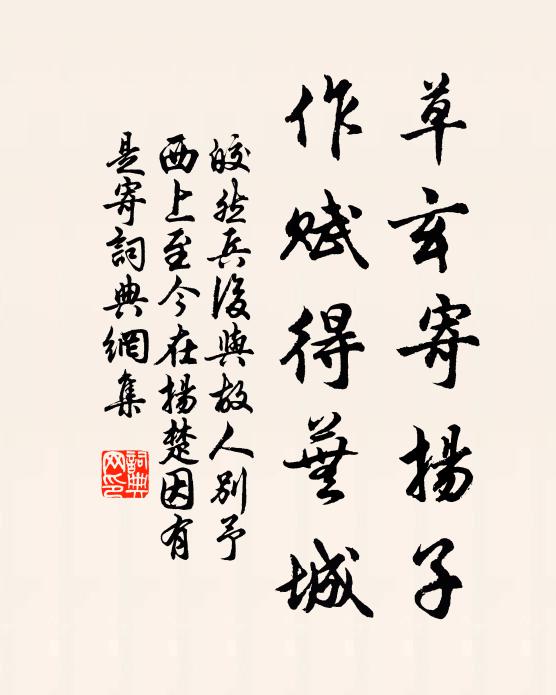 草玄寄揚子
作賦得蕪城
皎然兵後與故人別予
西上至今在揚楚因有
是寄詞典網集
詞典网印